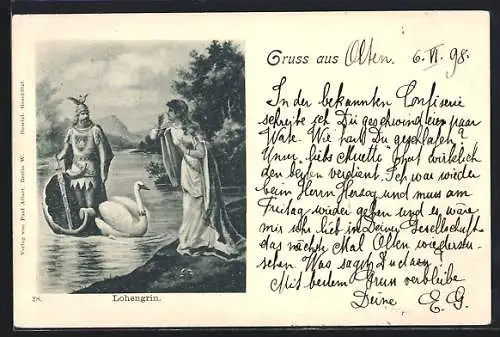 Gruss aus Olten. 6. VI. 98.
In der bekannten Confiserie
schreibe ich Dir geschwind ein paar
Worte. Wie hast Du geschlafen?
Unser liebs Muetti hat wirklich
den besten verdient. Ich war wieder
beim Herrn Herzog und muss am
Freitag wieder gehen und es wäre
mir sehr lieb in Deiner Gesellschaft
das nächste Mal Olten wiederzu-
sehen. Was sagst Du dazu
Mit bestem Gruss verbleibe
Deine E. G.
Verlag von Paul Albert, Berlin W. Gesetzl. Geschützt.
28. Lohengrin.